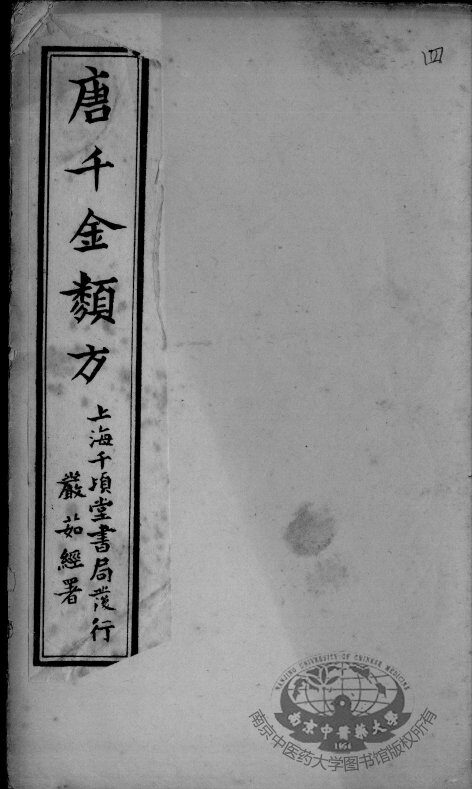 四
唐千金類方
上海千頃堂書局發行
嚴茹經署
NANJING UNIVERSITY OF CHINESE MEDICINE
南京中醫藥大學
1954
南京中医药大学图书馆版权所有